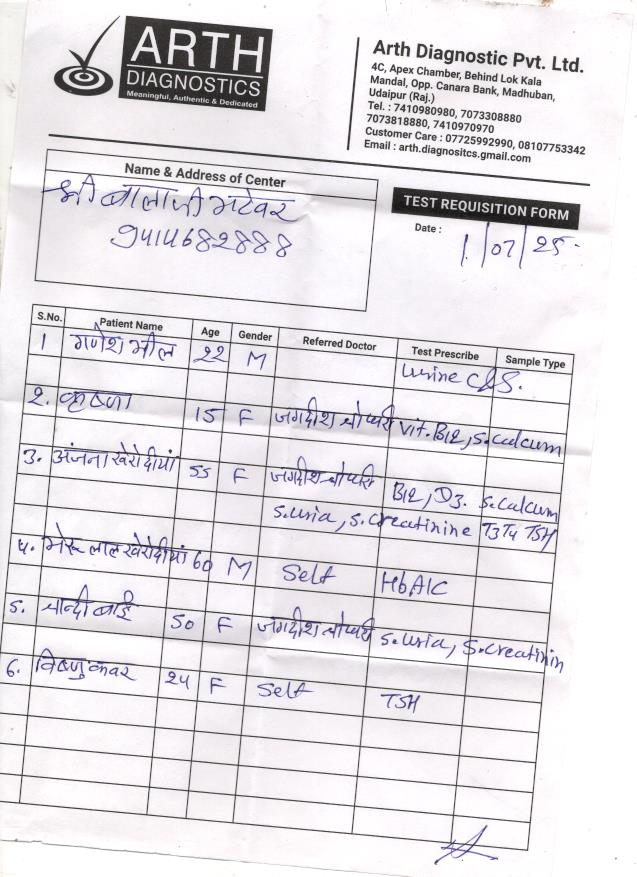 ARTH
DIAGNOSTICS
Meaningful, Authentic & Dedicated
Arth Diagnostic Pvt. Ltd.
4C, Apex Chamber, Behind Lok Kala
Mandal, Opp. Canara Bank, Madhuban,
Udaipur (Raj.)
Tel. : 7410980980, 7073308880
7073818880, 7410970970
Customer Care : 07725992990, 08107753342
Email : arth.diagnositcs.gmail.com
Name & Address of Center
श्री बालाजी भटेवर
9414682888
TEST REQUISITION FORM
Date : 1/07/25
S.No. Patient Name Age Gender Referred Doctor Test Prescribe Sample Type
1 गणेश भील 22 M Urine C&S.
2. कृष्णा 15 F जगदीश चोधरी Vit. B12, S. Calcum
3. अंजना खेरोदीयां 55 F जगदीश चोधरी B12, D3. S. Calcum
S. Uria, S. Creatinine T3 T4 TSH
4. भेरू लाल खेरोदीयां 60 M Self HbA1C
5. चान्दी बाई 50 F जगदीश चोधरी S. Uria, S. Creatinin
6. विष्णु कवर 24 F Self TSH